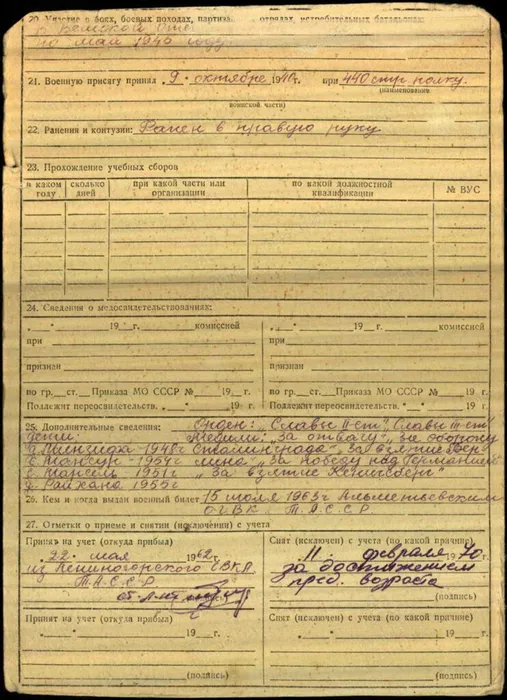 20. Участие в боях, боевых походах, партиз. отрядах, истребительных батальонах:
по май 1945 году
21. Военную присягу принял „9" октябре 1940г. при 440 стр полку.
(наименование
воинской части)
22. Ранения и контузии: Ранен в правую руку
23. Прохождение учебных сборов
в каком году | сколько дней | при какой части или организации | по какой должностной квалификации | № ВУС
24. Сведения о медосвидетельствованиях:
„ " 19 г. комиссией „ " 19 г. комиссией
при при
признан признан
по гр. ст. Приказа МО СССР № 19 г. по гр. ст. Приказа МО СССР № 19 г.
Подлежит переосвидетельств. „ " 19 г. Подлежит переосвидетельств. „ " 19 г.
25. Дополнительные сведения: Орден: „Славы II-ст" Славы III-ст
дети: Медали: „За отвагу", за оборону
д. 1948г Сталинграда", за взятие
с. Мансур - 1954г „За победу над Германией
с. 1951г „За взятие Кенигсберг"
д. Райхана 1955г
26. Кем и когда выдан военный билет 15 июля 1963г Альметьевским
ОГВК Т.А.С.С.Р.
27. Отметки о приеме и снятии (исключении) с учета
Принят на учет (откуда прибыл) Снят (исключен) с учета (по какой причине)
„22" мая 1962г. „11" февраля 1970г.
из Лениногорского ГВКА за достижением
Т.А.С.С.Р. пред. возраста
(подпись) (подпись)
Принят на учет (откуда прибыл) Снят (исключен) с учета (по какой причине)
„ " 19 г. „ " 19 г.
(подпись) (подпись)